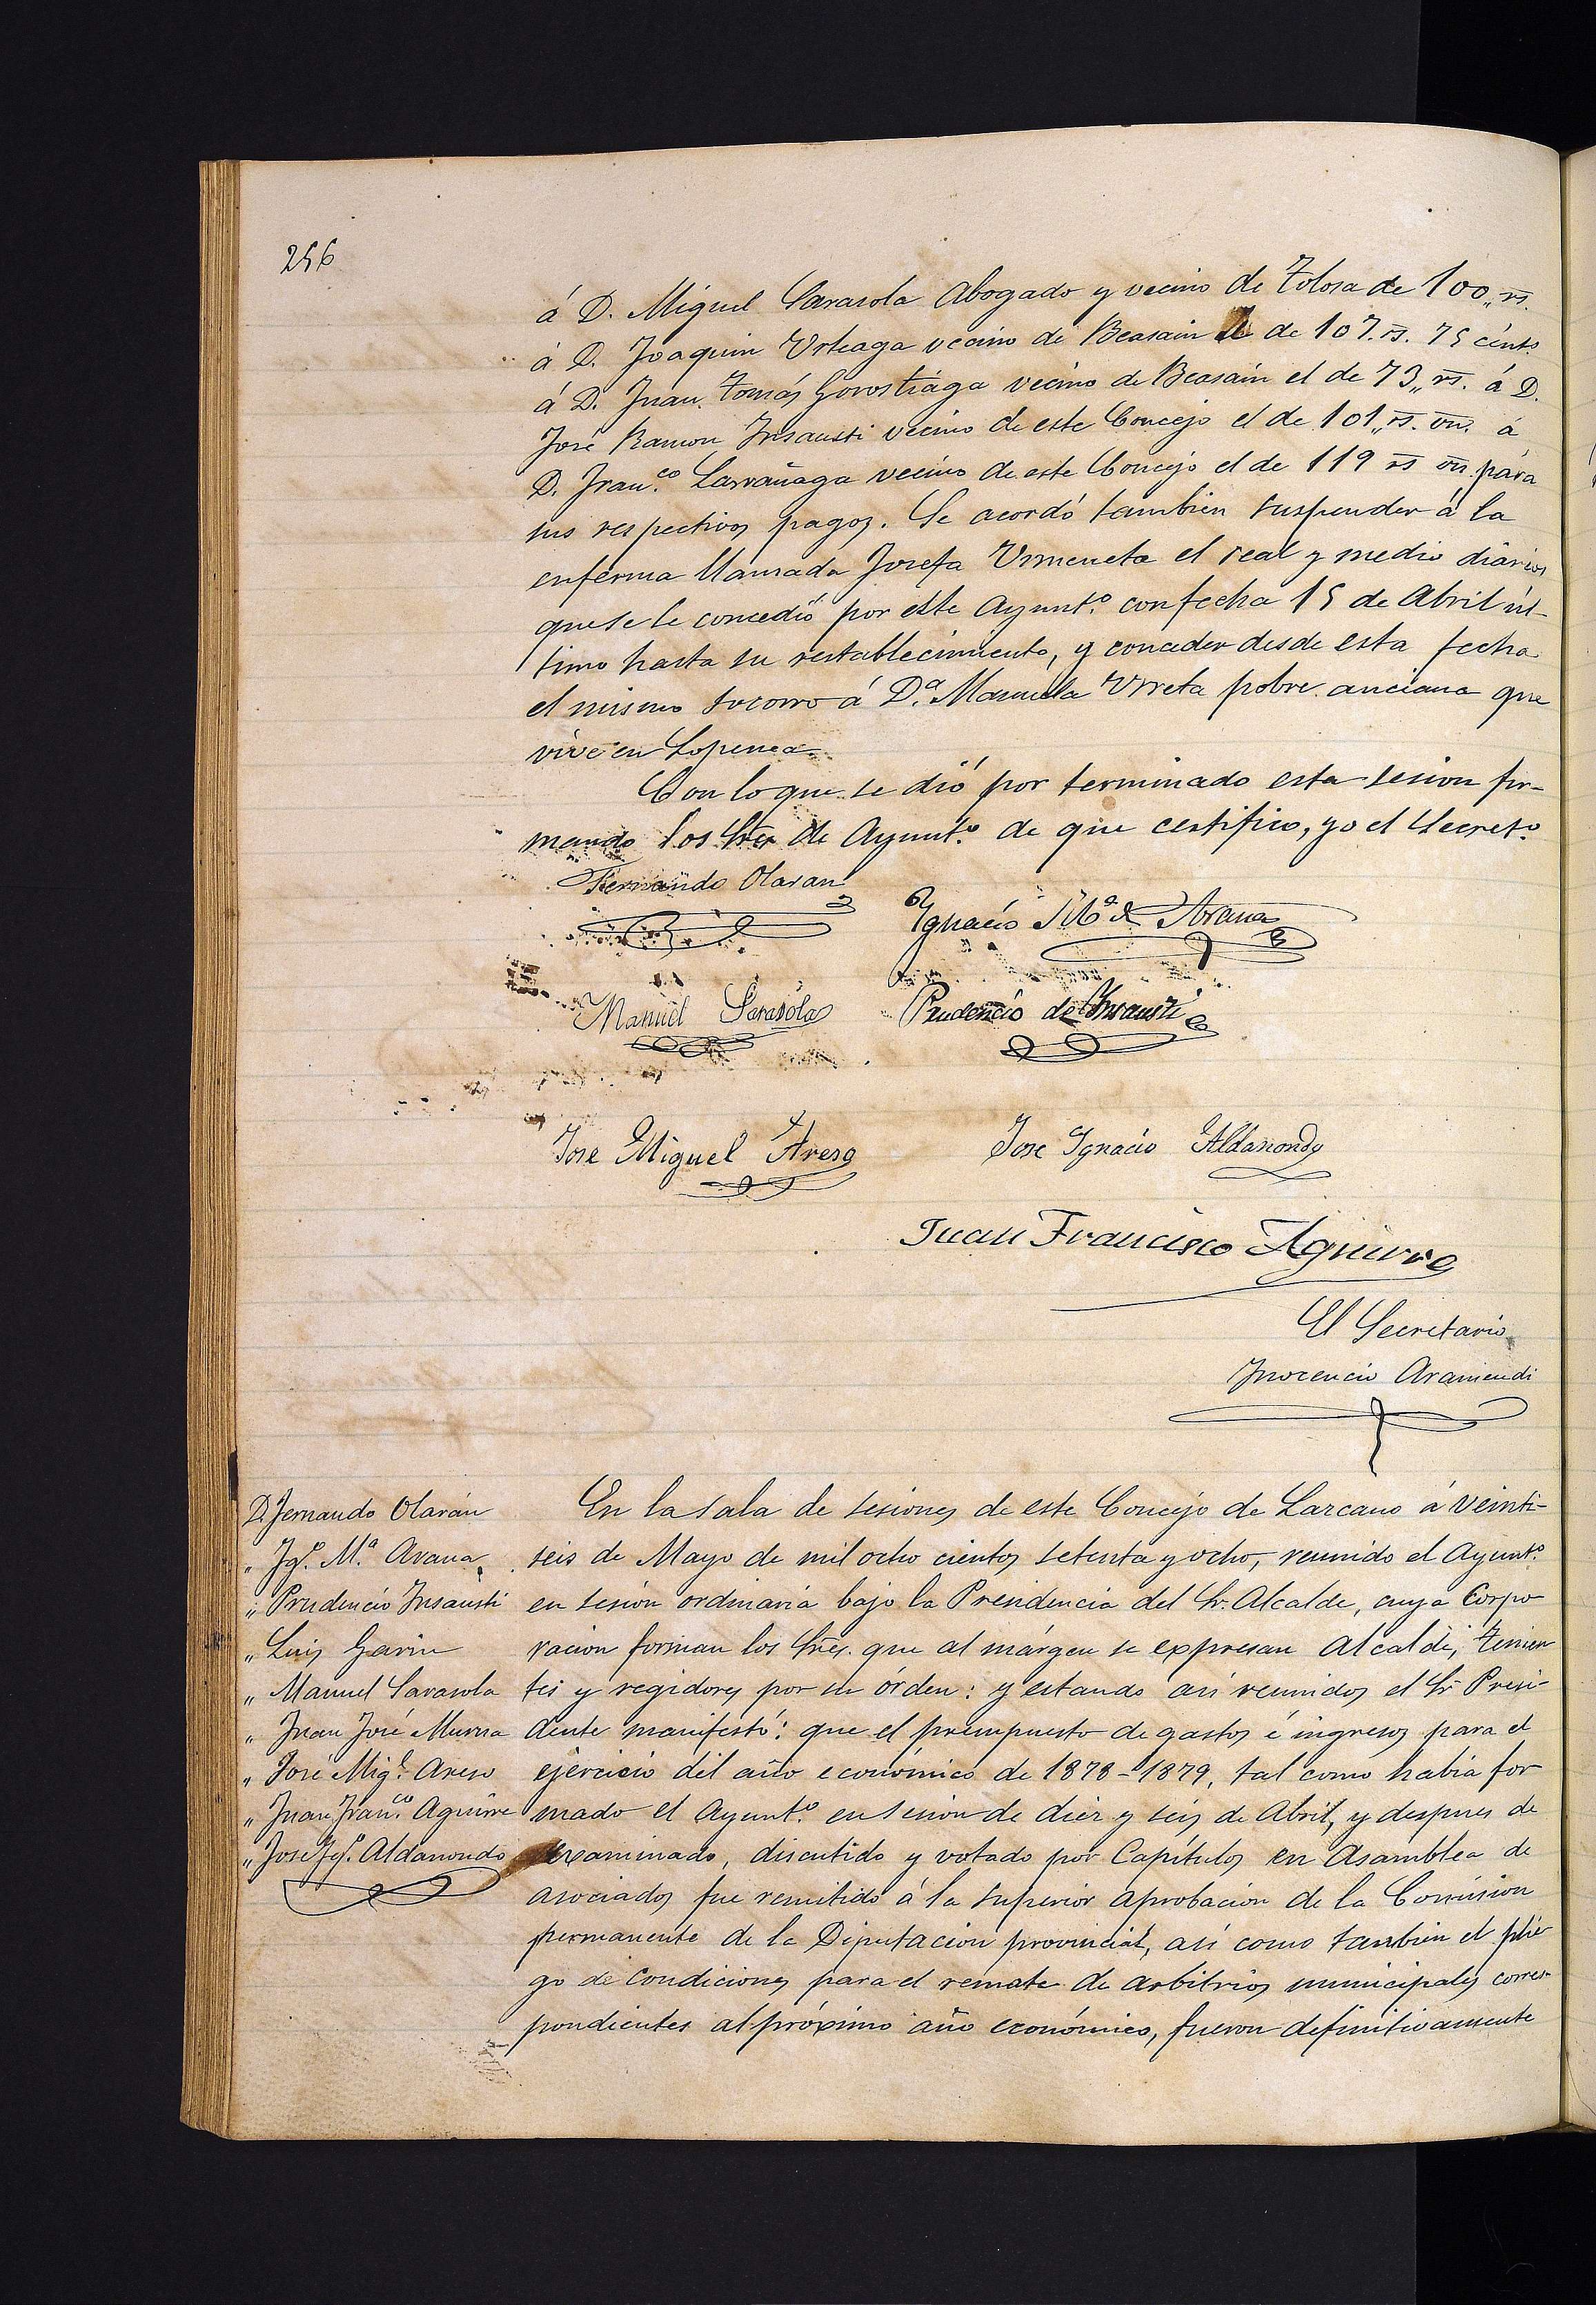 256
á D. Miguel Sarasola Abogado y vecino de Tolosa de 100,, rs.
á D. Joaquin Urteaga vecino de Beasain el de 107. rs. 75 cénts.
á D. Juan Tomás Gorostiaga vecino de Beasain el de 73,, rs. á D.
José Ramon Insausti vecino de este Concejo el de 101,, rs. vn. á
D. Fran.co Larrañaga vecino de este Concejo el de 119 rs vn. para
sus respectivos pagos. Se acordó tambien suspender á la
enferma llamada Josefa Urmeneta el real y medio diarios
que se le concedió por este Ayunt.o con fecha 15 de Abril úl-
timo hasta su restablecimiento, y conceder desde esta fecha
el mismo socorro á D.a Manuela Urreta pobre anciana que
vive en Lopenea.
Con lo que se dió por terminado esta sesion fir-
mando los Sres de Ayunt.o de que certifico, yo el Secret.o
Fernando Olaran
Ygnacio M.a de Arana
Manuel Sarasola
Prudencio de Insausti
Jose Miguel Areso
Jose Ygnacio Aldasondo
Juan Francisco Aguirre
El Secretario
Inocencio Aramendi
D. Fernando Olarán
" Jg.o M.a Arana
" Prudencio Insausti
" Luis Garin
" Manuel Sarasola
" Juan José Murua
" José Mig.l Areso
" Juan Fran.co Aguirre
" José Jg.o Aldasondo
En la sala de sesiones de este Concejo de Lazcano á veinti-
seis de Mayo de mil ocho cientos setenta y ocho, reunido el Ayunt.o
en sesión ordinaria bajo la Presidencia del Sr. Alcalde, cuya Corpo-
racion forman los Sres. que al márgen se expresan Alcalde, Tenien
tes y regidores por su órden: y estando asi reunidos el Sr. Presi-
dente manifestó: que el presupuesto de gastos é ingresos para el
ejercicio del año económico de 1878-1879, tal como habia for
mado el Ayunt.o en sesion de diez y seis de Abril, y despues de
examinado, discutido y votado por Capítulos en Asamblea de
asociados fue remitido á la superior aprobacion de la Comision
permanente de la Diputacion provincial, asi como tambien el plie
go de condiciones para el remate de arbitrios municipales corres-
pondientes al próximo año económico, fueron definitivamente